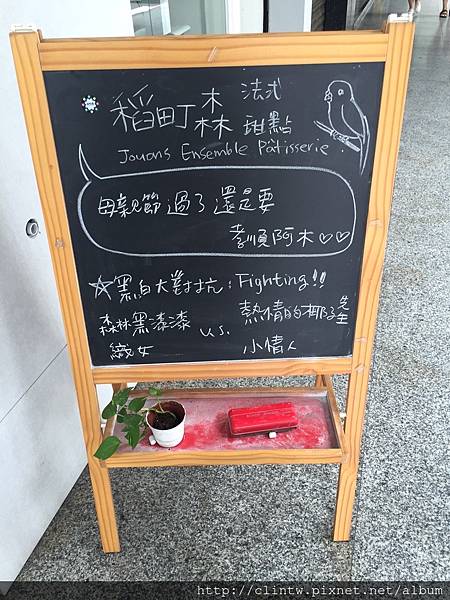 稻町森 法式
甜點
Jouons Ensemble Pâtisserie
母親節過了還是要
孝順阿木♡♡
☆黑白大對抗:Fighting!!
森林黑漆漆 v.s. 熱情的椰子先生
織女 小情人
http://clintw.pixnet.net/album